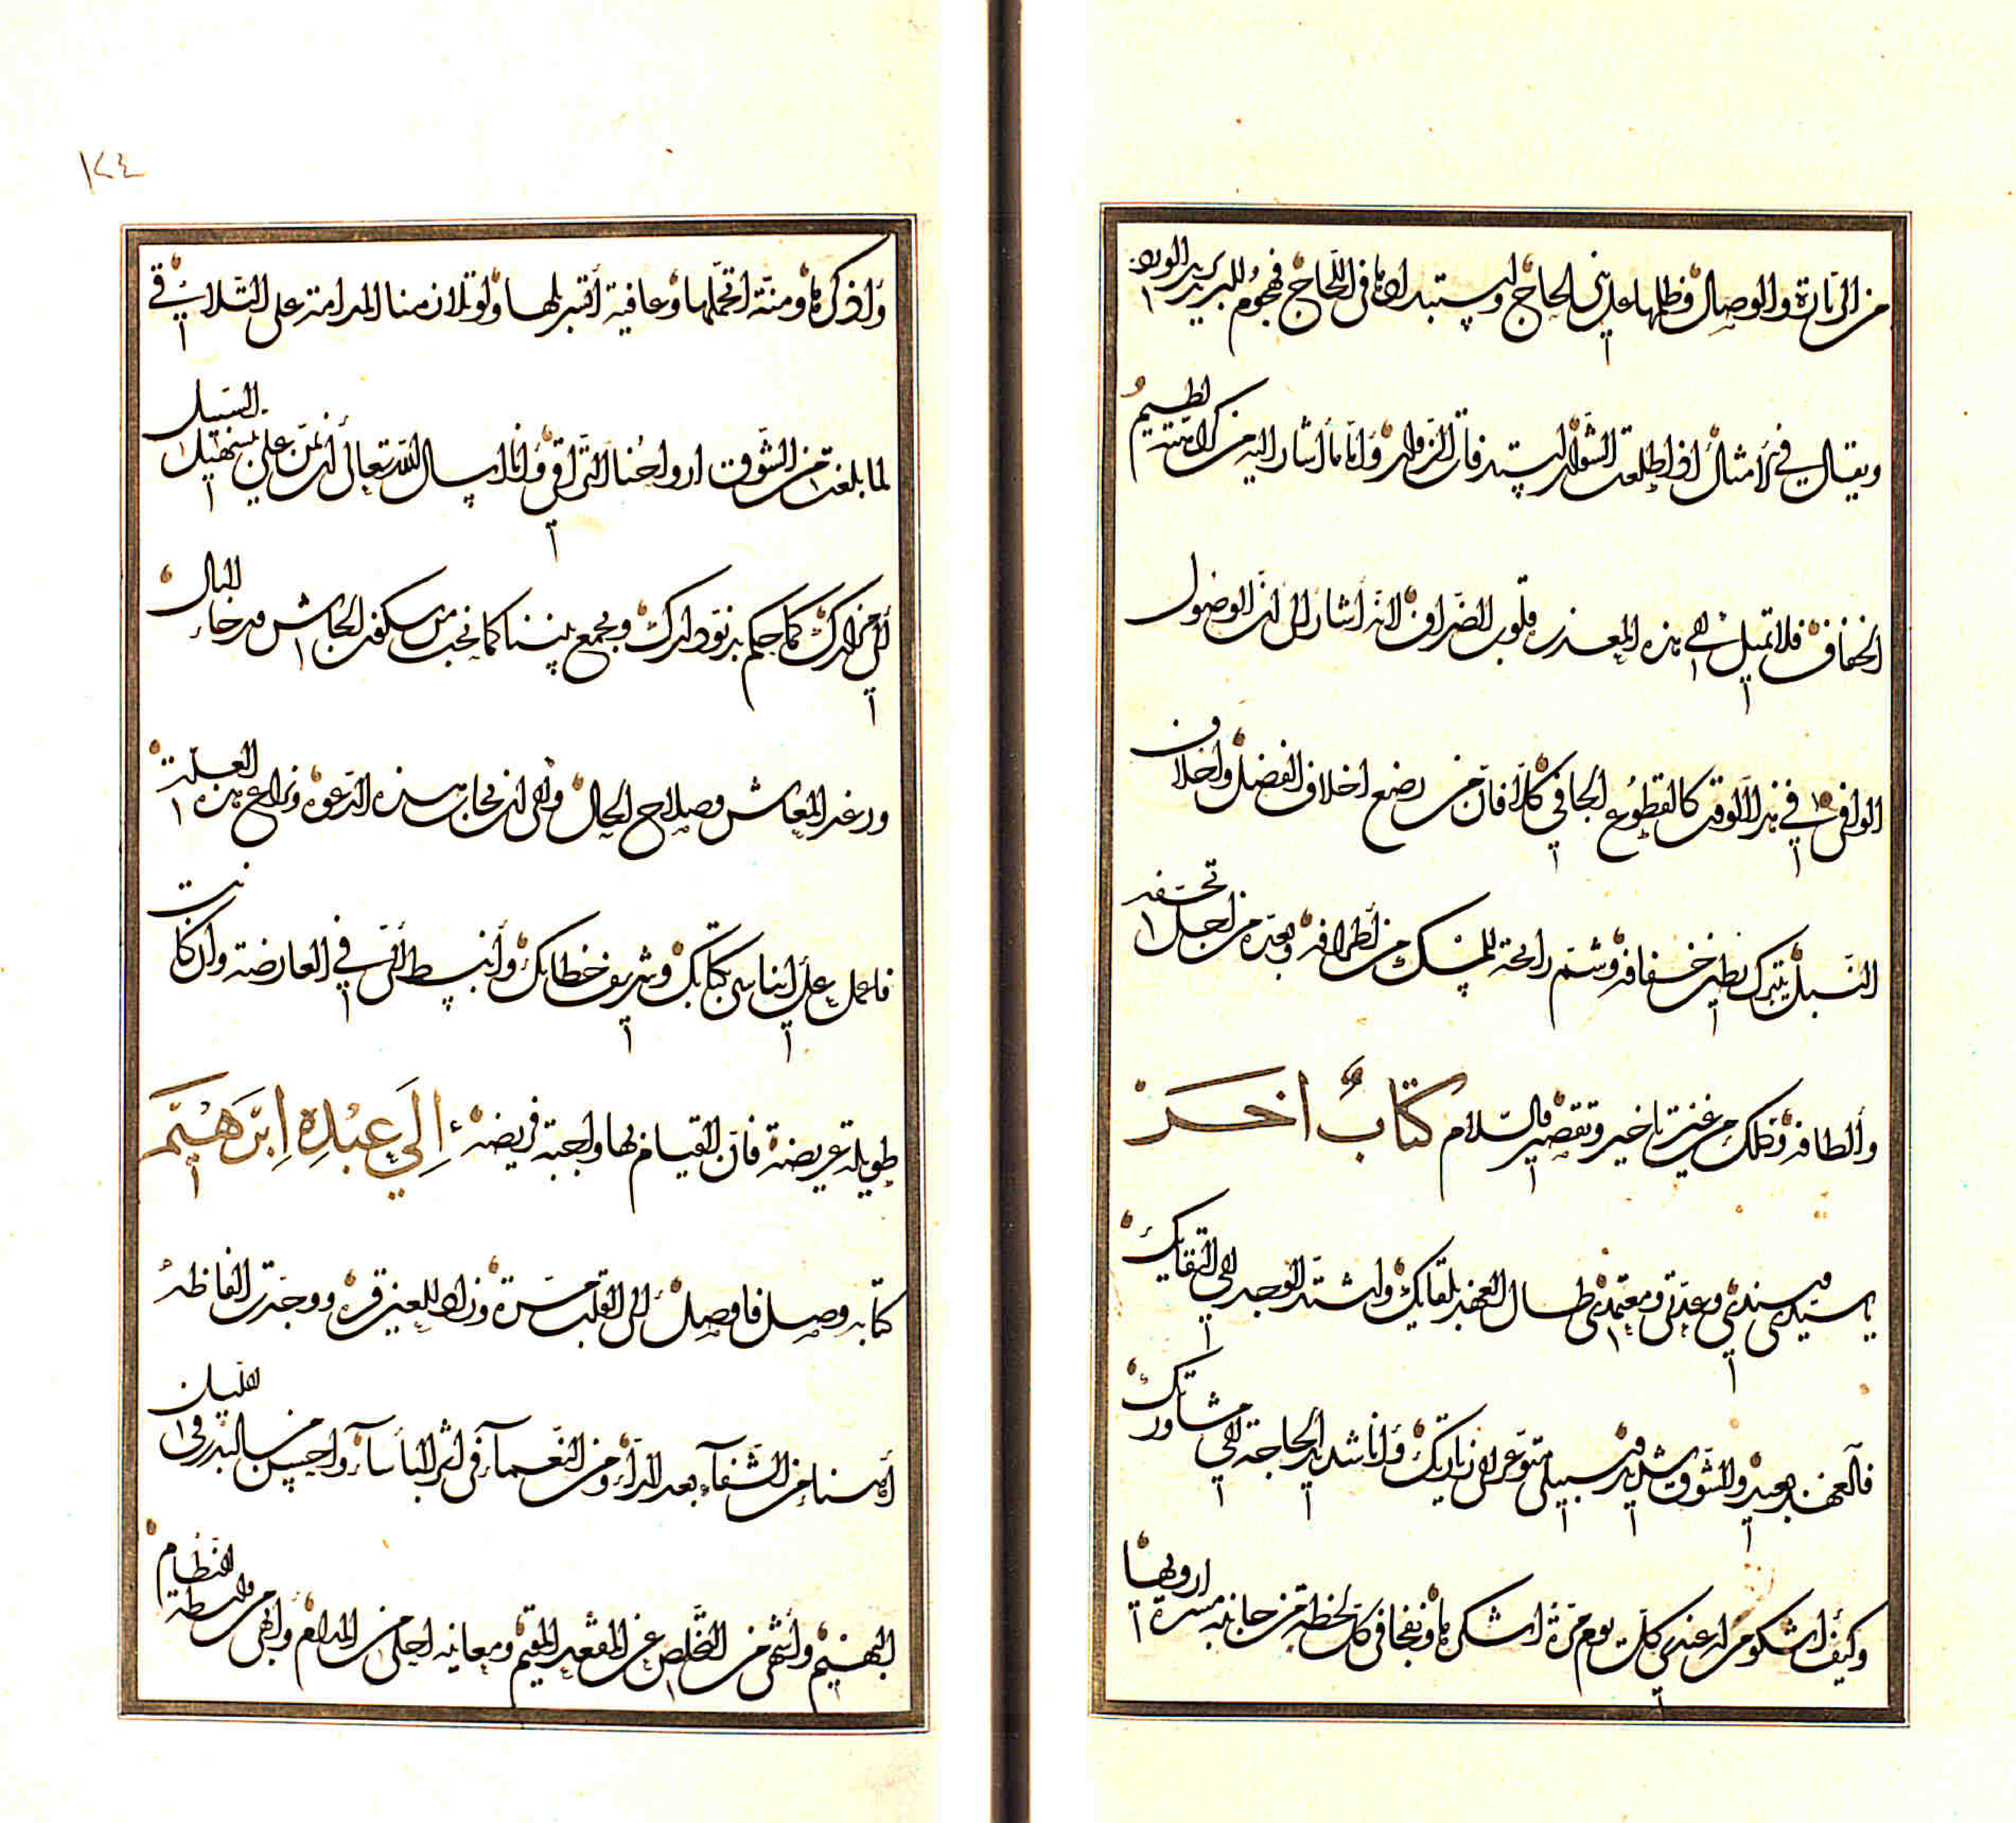 من الزيارة والوصال وظلها على الحاج ولستبداها في اللجاج فهجوم للبريد الورد
ويقال في الأمثال اذا طلعت الشوال لستد فان الزوار وانا ما أشار اليه من كرامته لطيم
الخفاف فلا تميل الى هذه المعذرة قلوب الضراف لانه اشار الى ان الوصول
الوافي في هذا الوقت كالقطوع الجافي كلا فان من رضع اخلاف الفضل واخلاف
النبل يتبرك بطين خفافه وشم رائحة المسك من اطرافه وبعده من اجل تحفه
وألطافه وتكلمك من غير تاخير وتقصير والسلام كتاب اخر
يا سيدي وسندي وعدتي ومعتمدي طال العهد بلقايك واشتد الوجد الى التقايك
فالعهد بعيد والشوق شديد وسبيلي متوعر الى زيارتك وانا شديد الحاجة الى مشاورتك
وكيف أشكو من له عندي كل يوم مبرة اشكرها ونفحا في كل لحظة من جانبه مسرة ارويها
واذكرها ومنة اتحملها وعافية أقبلها ولو تلا زمنا المدامة على التلاقي
لما بلغت من الشوق ارواحنا التراقي وانا اسال الله تعالى أن يمن علي بتسهيل السبيل
الى مزارك كما حكم بدنو دارك ويجمع بيننا كما نحب من سكون الجاش ورخاء البال
ورغد المعاش وصلاح الحال والى ان يجاب هذه الدعوة وتزاح هذه العلة
فاعمل على ايناسي بكتابك وشريف خطابك وأنبسط الى في العارضة وان كانت
طويلة عريضة فان القيام بها واجبة فريضة الي عبده ابرهيم
كتابه وصل فاوصل الى القلب مسرة وزاد للعين قرة ووجدت الفاظه
أهنا من الشفآء بعد الدآء ومن النعمآء في اثر البأسآء واحسن من البدر في الليان
البهيم واشهى من التخلص عن المقعد المقيم ومعانيه احلى من المدام وابهى من واسطة النظام